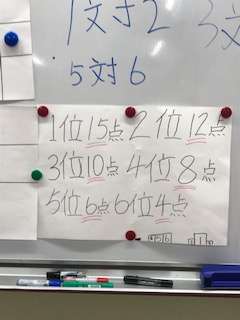 1対2 3対
5対6
1位15点 2位12点
3位10点 4位8点
5位6点 6位4点